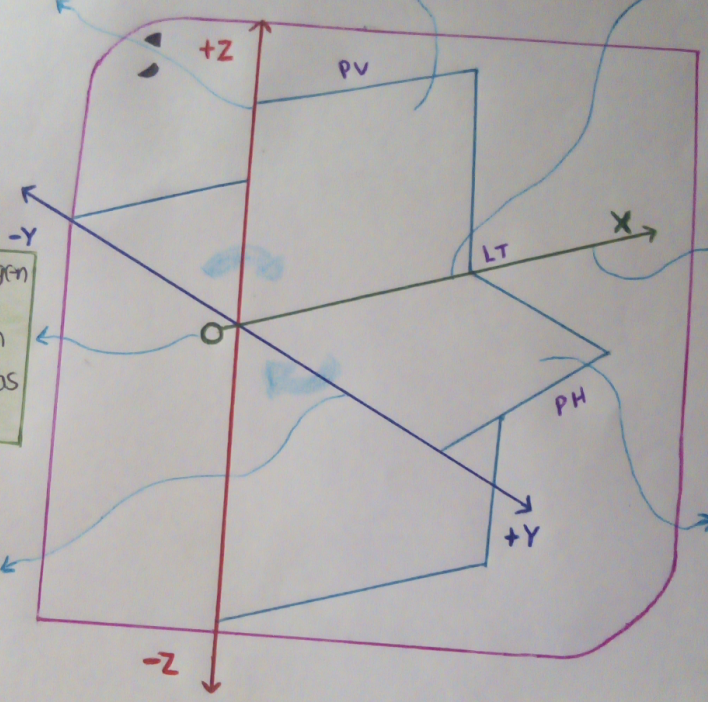 +Z
PV
-Y
X
LT
O
PH
+Y
-Z